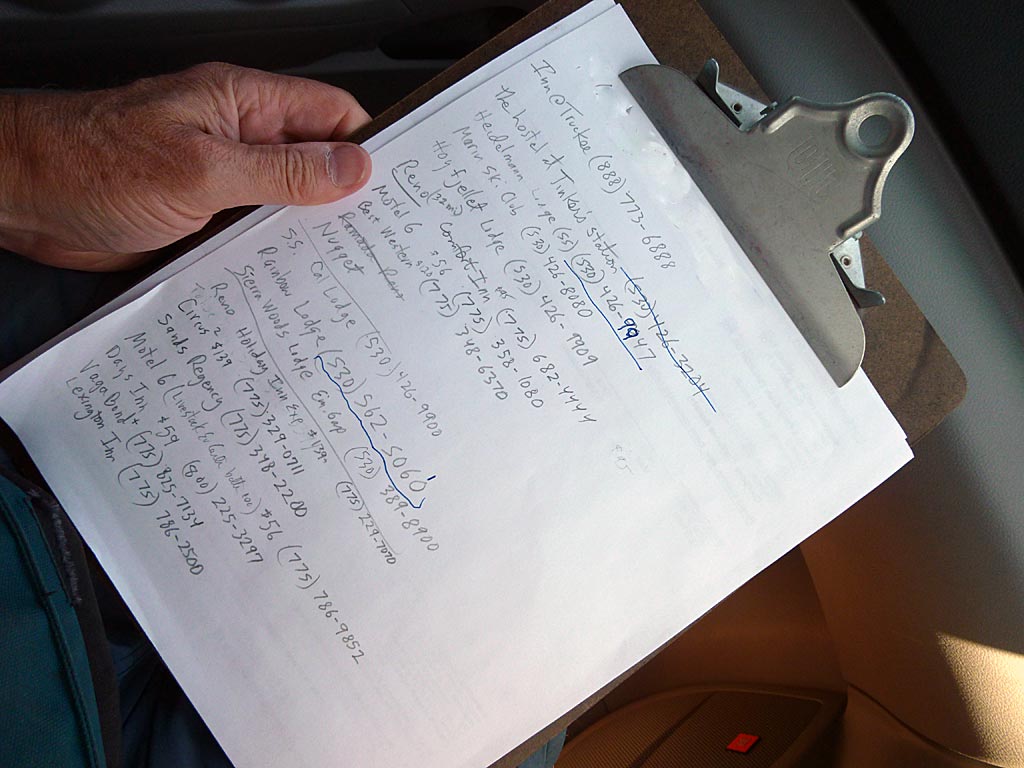 Inn @ Truckee (888) 773-6888
The hostel at Tinkers' station (530) 426-3224
Heidelmann Lodge (55) (530) 426-9947
Marin Sk. Club (530) 426-8080
Hoyfjellet Lodge (530) 426-9909
Reno (32mi) Comfort Inn (775) 682-4444
Motel 6 $56 (775) 358-1080
Best Western $120 (775) 348-6370
Ramada Reno
Nugget
S.S. Cal Lodge (530) 426-9900
Rainbow Lodge (530) 562-5060
Sierra Woods Lodge Em Gap (530) 389-8900
Reno Holiday Inn Exp. $139- (775) 229-7070
Circus 2 $139 (775) 329-0711
Sands Regency (775) 348-2200
Motel 6 (Livestock Ev Center both) $56 (775) 786-9852
Days Inn $59 (800) 225-3297
Vagabond + (775) 825-7134
Lexington Inn (775) 786-2500
$95